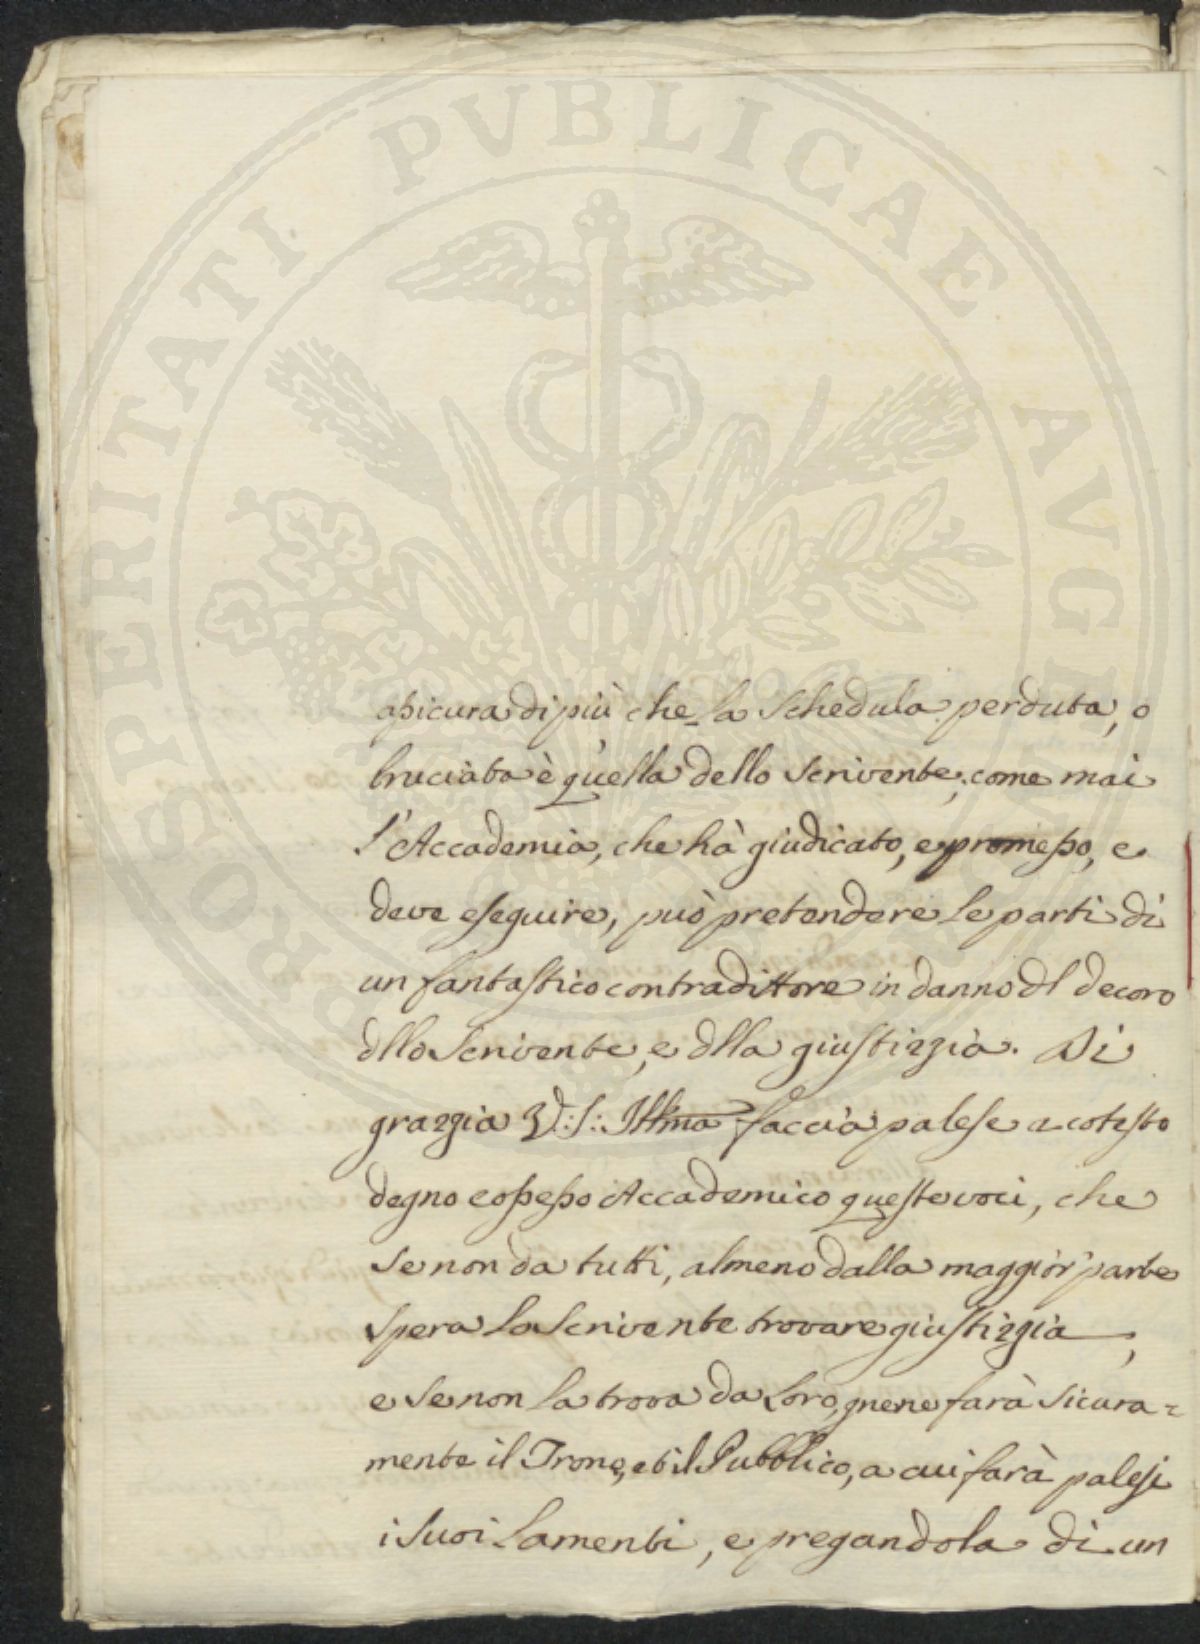 PROSPERITATI PVBLICAE AVGENDAE
assicura di più che la Schedula perduta, o
bruciata è quella dello Scrivente, come mai
l'Accademia, che hà giudicato, e promesso, e
deve eseguire, può pretendere le parti di
un fantastico contradittore in danno dl decoro
dllo Scrivente, e dlla giustizzia. Di
grazzia V: S: Illma faccia palese a cotesto
degno Accademico queste voci, che
se non da tutti, almeno dalla maggior parte
spera lo Scrivente trovare giustizzia,
e se non la trova da Loro, gnene farà sicura=
mente il Trono, et il Pubblico, a cui farà palesi
i suoi lamenti, e pregandola di un